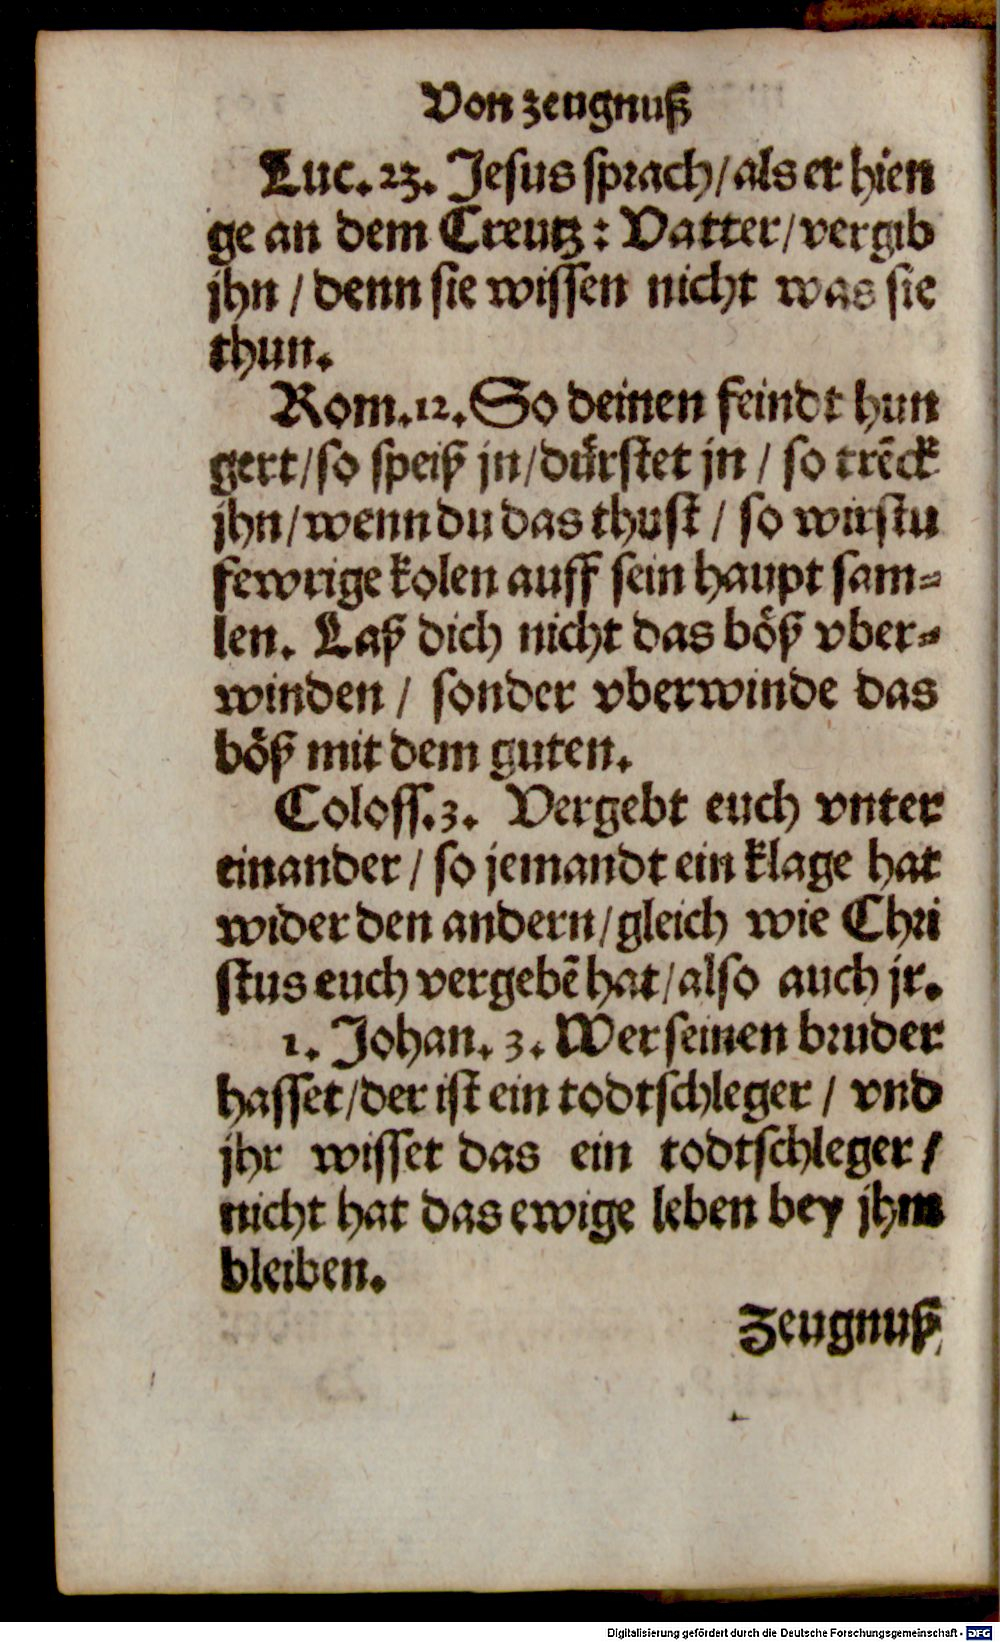 Von zeugnuß
Luc. 23. Jesus sprach/als er hien
ge an dem Creutz: Vatter/vergib
jhn / denn sie wissen nicht was sie
thun.
Rom. 12. So deinen feindt hun
gert/so speiß jn/dürstet jn / so trẽck
jhn/wenn du das thust / so wirstu
fewrige kolen auff sein haupt sam-
len. Laß dich nicht das böß vber-
winden / sonder vberwinde das
böß mit dem guten.
Coloss. 3. Vergebt euch vnter
einander / so jemandt ein klage hat
wider den andern/gleich wie Chri
stus euch vergebẽ hat/also auch jr.
1. Johan. 3. Wer seinen bruder
hasset/der ist ein todtschleger / vnd
jhr wisset das ein todtschleger/
nicht hat das ewige leben bey jhm
bleiben.
Zeugnuß
Digitalisierung gefördert durch die Deutsche Forschungsgemeinschaft - DFG